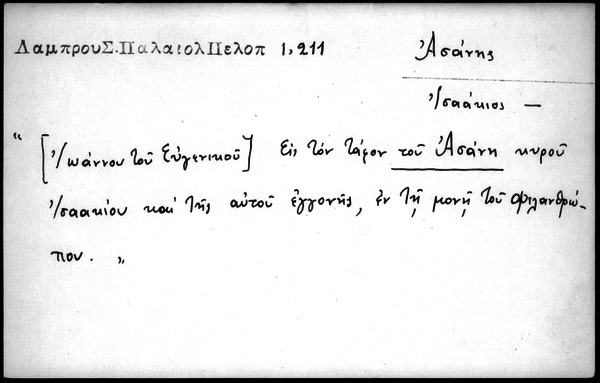 ΛαμπρουΣ.ΠαλαιολΠελοπ 1,211
Ἀσάνης
Ἰσαάκιος —
“ [Ἰωάννου τοῦ Εὐγενικοῦ] Εἰς τὸν τάφον τοῦ Ἀσάνη κυροῦ
Ἰσαακίου καὶ τῆς αὐτοῦ ἐγγονῆς, ἐν τῇ μονῇ τοῦ Φιλανθρώ-
που. „